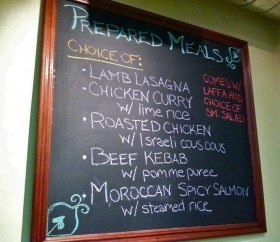 PREPARED MEALS
CHOICE OF:
• LAMB LASAGNA
• CHICKEN CURRY
w/ lime rice
• ROASTED CHICKEN
w/ Israeli cous cous
• BEEF KEBAB
w/ pomme puree
• MOROCCAN SPICY SALMON
w/ steamed rice
COMES W/
LAFFA AND
CHOICE OF
SM. SALAD